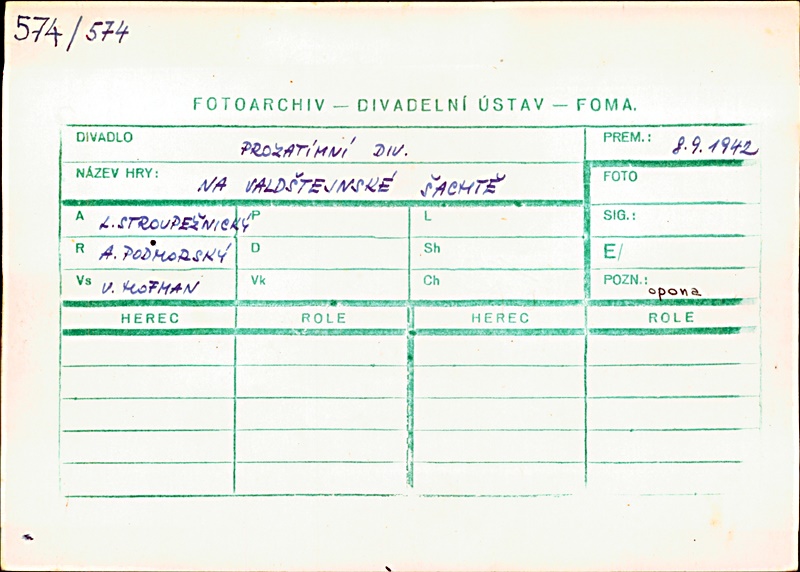 574/574
FOTOARCHIV — DIVADELNÍ ÚSTAV — FOMA.
DIVADLO PROZATÍMNÍ DIV. PREM.: 8.9.1942
NÁZEV HRY: NA VALDŠTEJNSKÉ ŠACHTĚ FOTO
A L. STROUPEŽNICKÝ P L SIG.:
R A. PODHORSKÝ D Sh E/
Vs V. HOFMAN Vk Ch POZN.: opona
HEREC ROLE HEREC ROLE